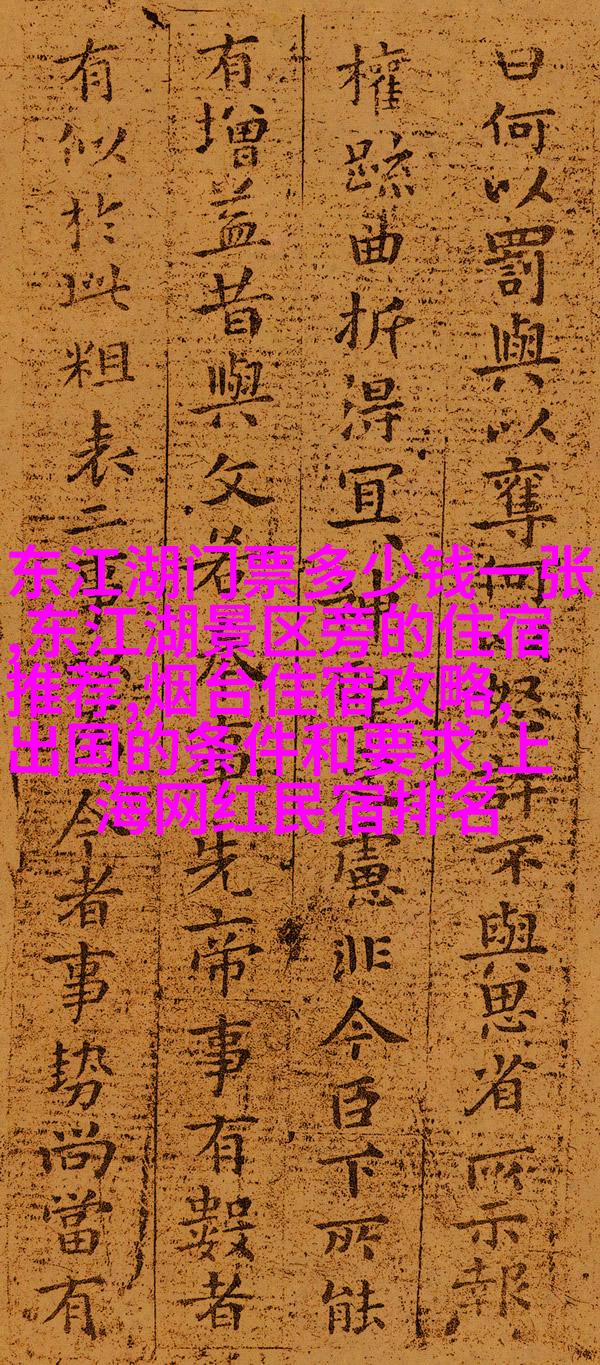 曰何以罰與以奪何以怒許不與思省所示報
權疏曲折得宜神聖之慮非今臣下所能
有增益昔與文若奉事先帝事有數者
有似於此粗表二事以為今者事勢尚當有
东江湖门票多少钱一张
,东江湖景区旁的住宿
推荐,烟台住宿攻略,
出国的条件和要求,上
海网红民宿排名